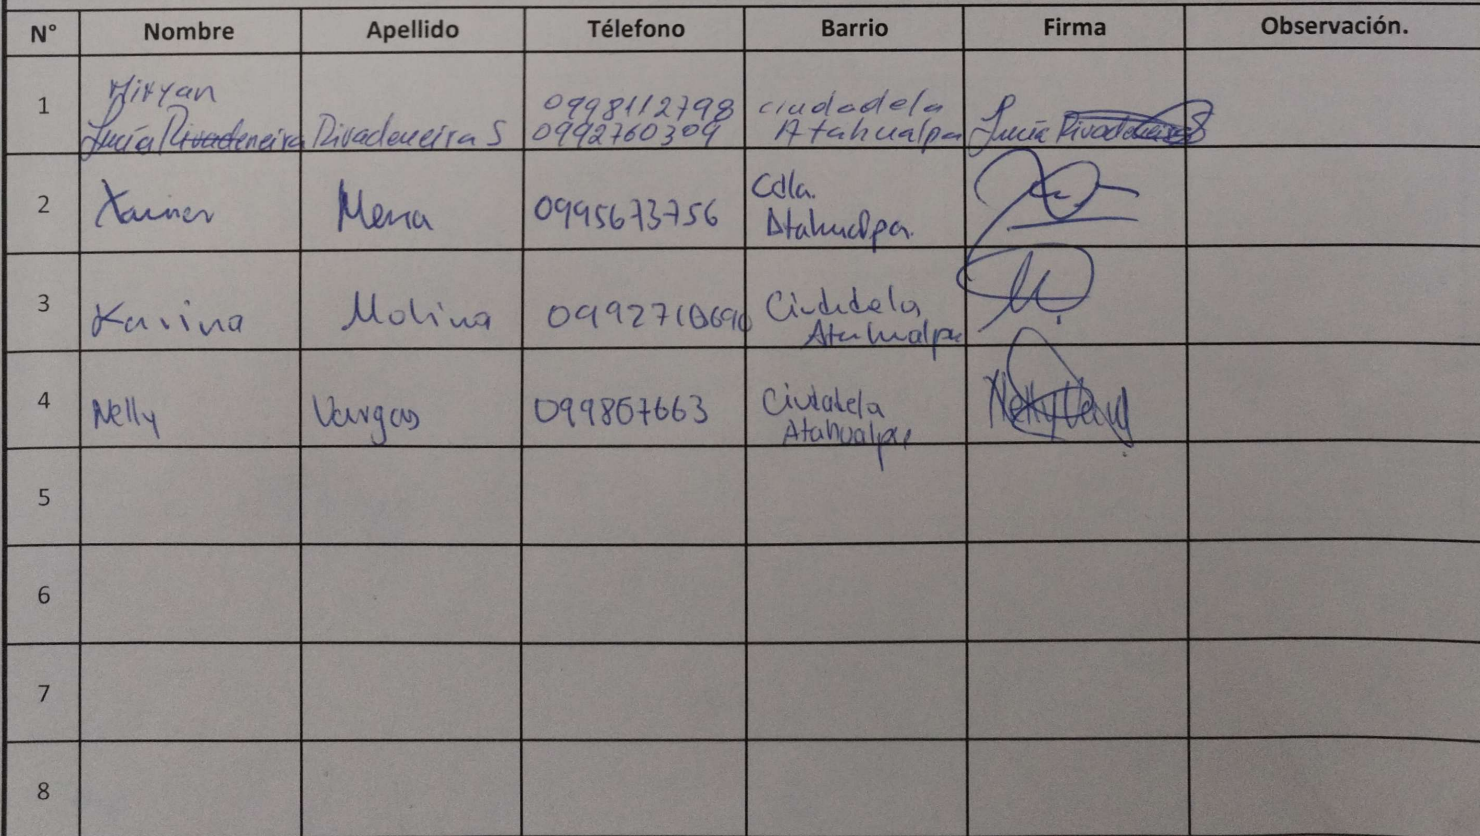 N° Nombre Apellido Télefono Barrio Firma Observación.
1 Miryan 0998112798 ciudadela
Lucía Rivadeneira Rivadeneira S 0992760309 Atahualpa Lucía Rivadeneira S
2 Xavier Mena 0995673756 Cdla.
Atahualpa.
3 Karina Molina Ciudadela
Atahualpa
4 Nelly Vargas 099807663 Ciudadela
Atahualpa Nelly Vargas
5
6
7
8